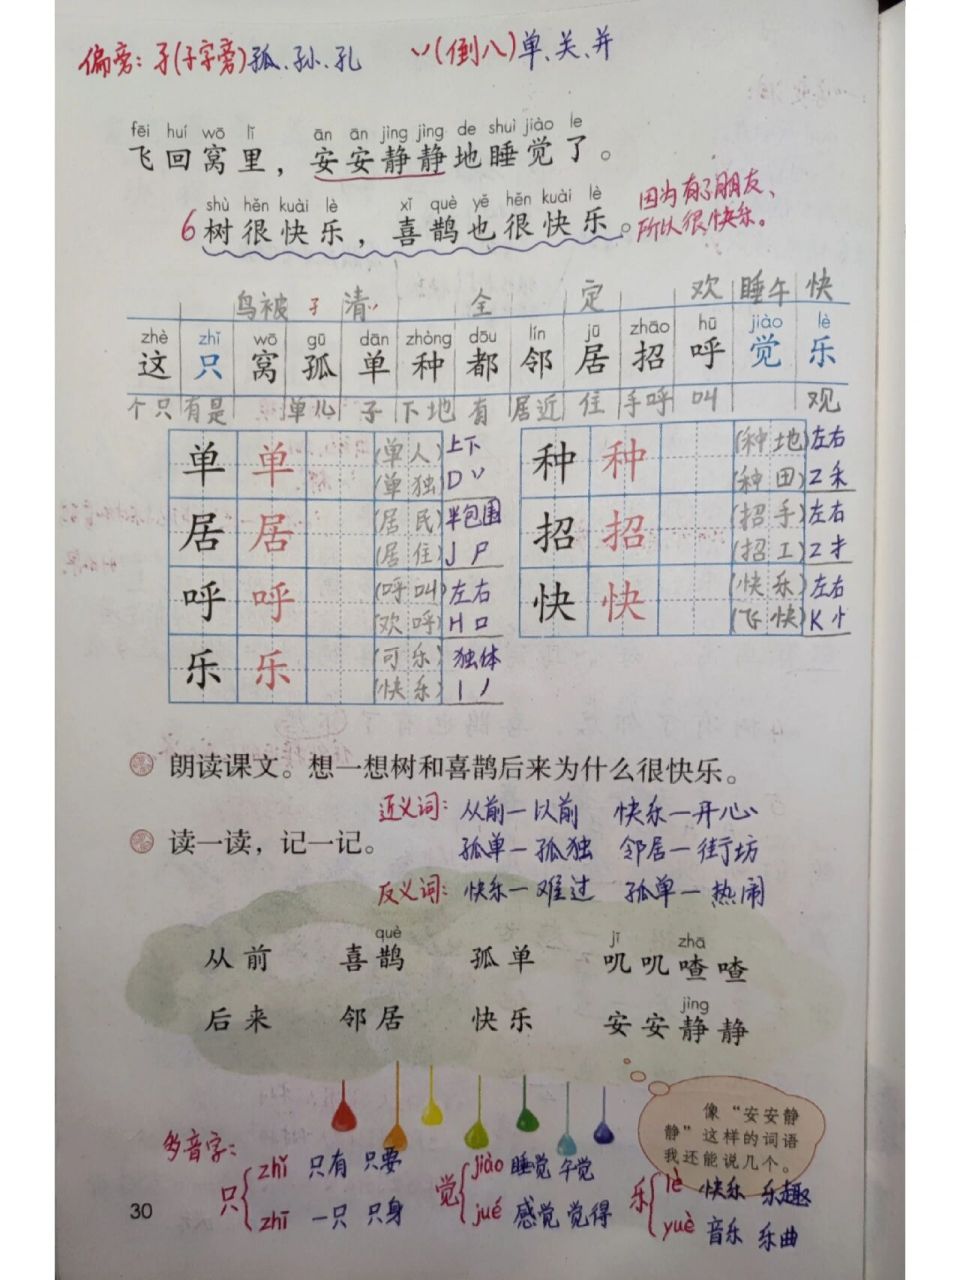 偏旁：孑(子字旁)孤、孙、孔　丷(倒八)单、关、并
fēi huí wō lǐ ān ān jìng jìng de shuì jiào le
飞回窝里，安安静静地睡觉了。
shù hěn kuài lè xǐ què yě hěn kuài lè
6树很快乐，喜鹊也很快乐。
因为有了朋友、
所以很快乐。
鸟被 子 清 全 定 欢 睡午 快
zhè zhǐ wō gū dān zhòng dōu lín jū zhāo hū jiào lè
这 只 窝 孤 单 种 都 邻 居 招 呼 觉 乐
个只 有是 单儿 子 下地 有 居近 住 手呼 叫 观
单 单 (单人) 上下
(单独) D 丷
居 居 (居民) 半包围
(居住) J 尸
呼 呼 (呼叫) 左右
(欢呼) H 口
乐 乐 (可乐) 独体
(快乐) l 丿
种 种 (种地) 左右
(种田) Z 禾
招 招 (招手) 左右
(招工) Z 扌
快 快 (快乐) 左右
(飞快) K 忄
朗读课文。想一想树和喜鹊后来为什么很快乐。
近义词：从前—以前　快乐—开心
读一读，记一记。
孤单—孤独　邻居—街坊
反义词：快乐—难过　孤单—热闹
què jī zhā
从前 喜鹊 孤单 叽叽喳喳
jìng
后来 邻居 快乐 安安静静
像“安安静
静”这样的词语
我还能说几个。
多音字：
只 zhǐ 只有 只要
zhī 一只 只身
觉 jiào 睡觉 午觉
jué 感觉 觉得
乐 lè 快乐 乐趣
yuè 音乐 乐曲
30